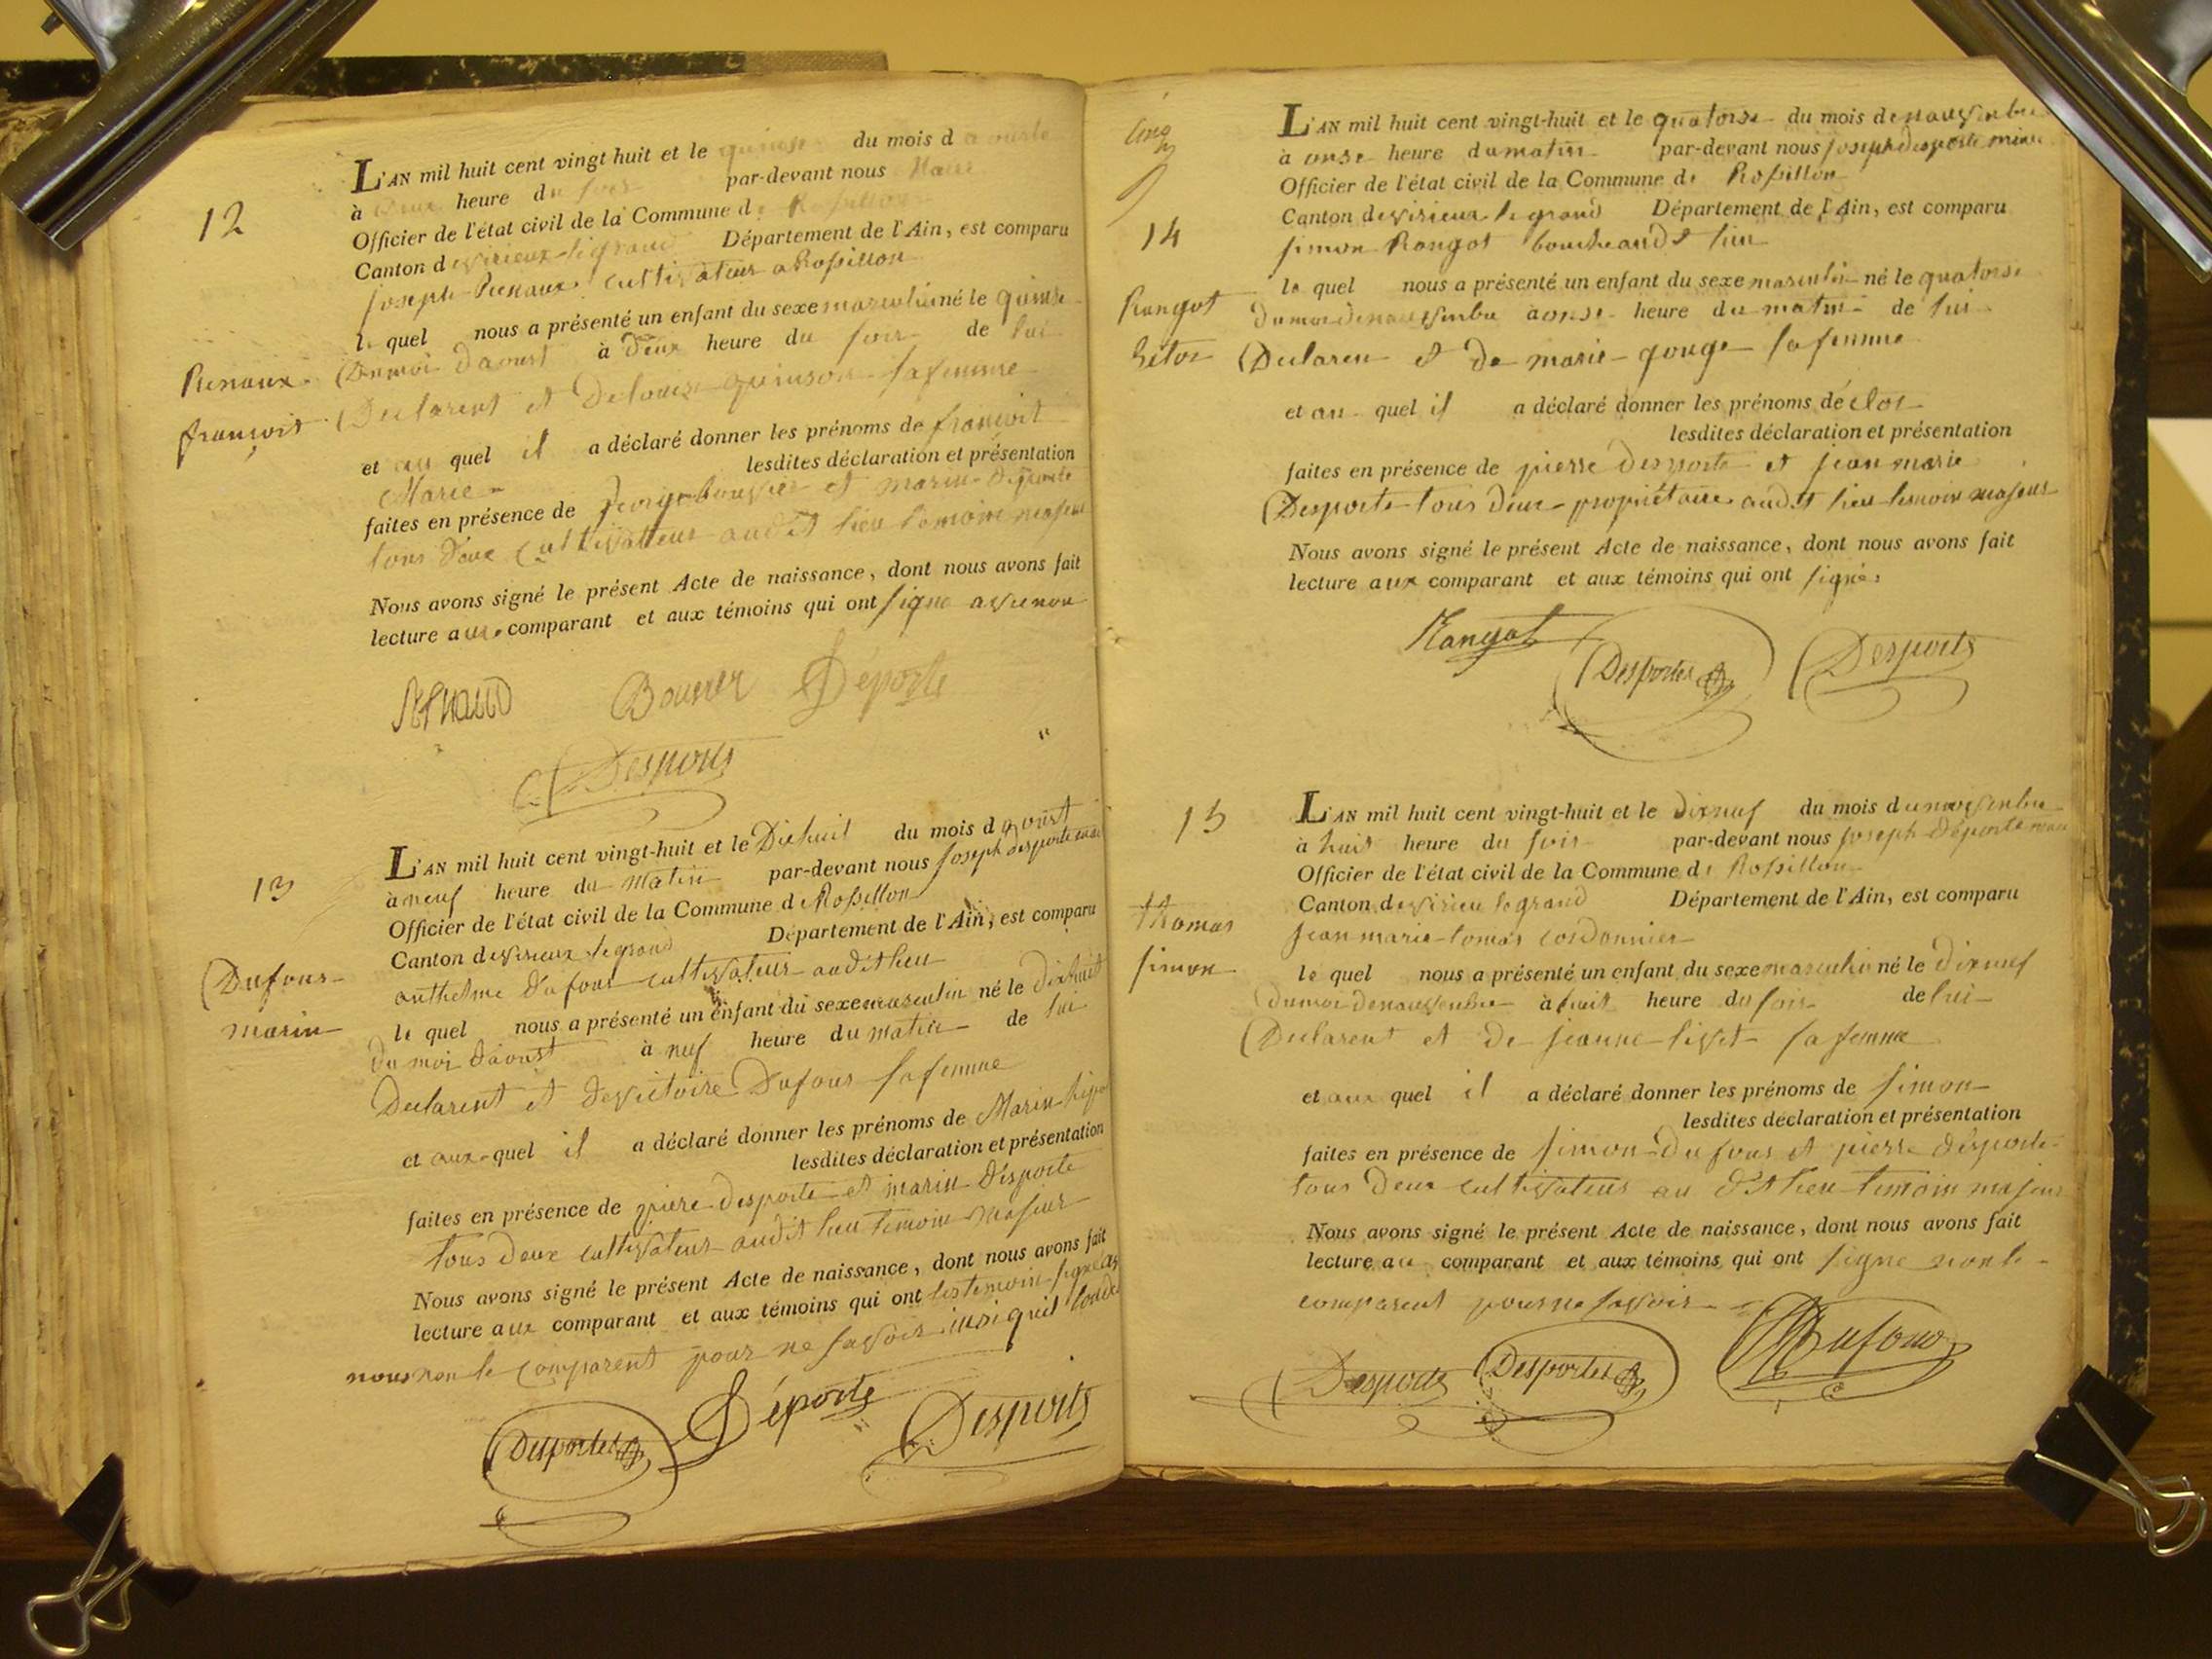 12
L'AN mil huit cent vingt huit et le quinse du mois d aouste
à deux heure du soir par-devant nous Maire
Officier de l'état civil de la Commune de Rossillon
Canton devirieux legrand Département de l'Ain, est comparu
joseph Renaux cultivateur a Rossillon
le quel nous a présenté un enfant du sexe masculin né le quinse
Renaux
Dumoi Daoust à Deux heure du soir de lui
françois
Declarent et Delouise quinson safemme
et au quel il a déclaré donner les prénoms de françoit
Marie lesdites déclaration et présentation
faites en présence de bouvier et marin Déporte
tous Deux Cultivatteur audit lieu temoin majeur
Nous avons signé le présent Acte de naissance, dont nous avons fait
lecture aux comparant et aux témoins qui ont signe avecnou
Bouvier Déporte
Desports
13
L'AN mil huit cent vingt-huit et le Dixhuit du mois d aoust
à neuf heure du Matin par-devant nous joseph desporte
Officier de l'état civil de la Commune de Rossillon
Canton devirieux legrand Département de l'Ain, est comparu
Dufour
anthelme Dufour cultivateur audit lieu
marin
le quel nous a présenté un enfant du sexe masculin né le dixhuit
du moi Daoust à neuf heure du matin de lui
Declarent et Devictoire Dufour safemme
et aux quel il a déclaré donner les prénoms de Marin
lesdites déclaration et présentation
faites en présence de piere desporte et marin Desporte
tous deux cultivateur audit lieu temoin majeur
Nous avons signé le présent Acte de naissance, dont nous avons fait
lecture aux comparant et aux témoins qui ont lestemoin signé
nous non le comparent pour ne savoir
Desportes Déporte Desports
L'AN mil huit cent vingt-huit et le quatorse du mois denauvembre
à onse heure dumatin par-devant nous joseph desporte
Officier de l'état civil de la Commune de Rossillon
Canton devirieux legrand Département de l'Ain, est comparu
14
simon Rongot audit lieu
le quel nous a présenté un enfant du sexe masculin né le quatorse
Rongot
dumoi denauvembre aonse heure du matin de lui
Declaren et de marie gouge safemme
et au quel il a déclaré donner les prénoms de
lesdites déclaration et présentation
faites en présence de pierre desporte et jean marie
Desporte tous deux propriétaire audit lieu temoin majeur
Nous avons signé le présent Acte de naissance, dont nous avons fait
lecture aux comparant et aux témoins qui ont signé
Rangot Desportes Desports
15
L'AN mil huit cent vingt-huit et le dixneuf du mois dunauvembre
à huit heure du soir par-devant nous joseph Déporte
Officier de l'état civil de la Commune de Rossillon
Canton devirieu legrand Département de l'Ain, est comparu
thomas
jean marie tomas cordonnier
simon
le quel nous a présenté un enfant du sexe masculin né le dixneuf
dumoi denauvembre à huit heure du soir de lui
Declarent et de jeanne livet sa femme
et aux quel il a déclaré donner les prénoms de simon
lesdites déclaration et présentation
faites en présence de simon Dufour et pierre désporte
tous Deux cultivateur au dit lieu temoin majeur
Nous avons signé le présent Acte de naissance, dont nous avons fait
lecture au comparant et aux témoins qui ont signe non le
comparent pour ne savoir
Desports Desportes Dufour